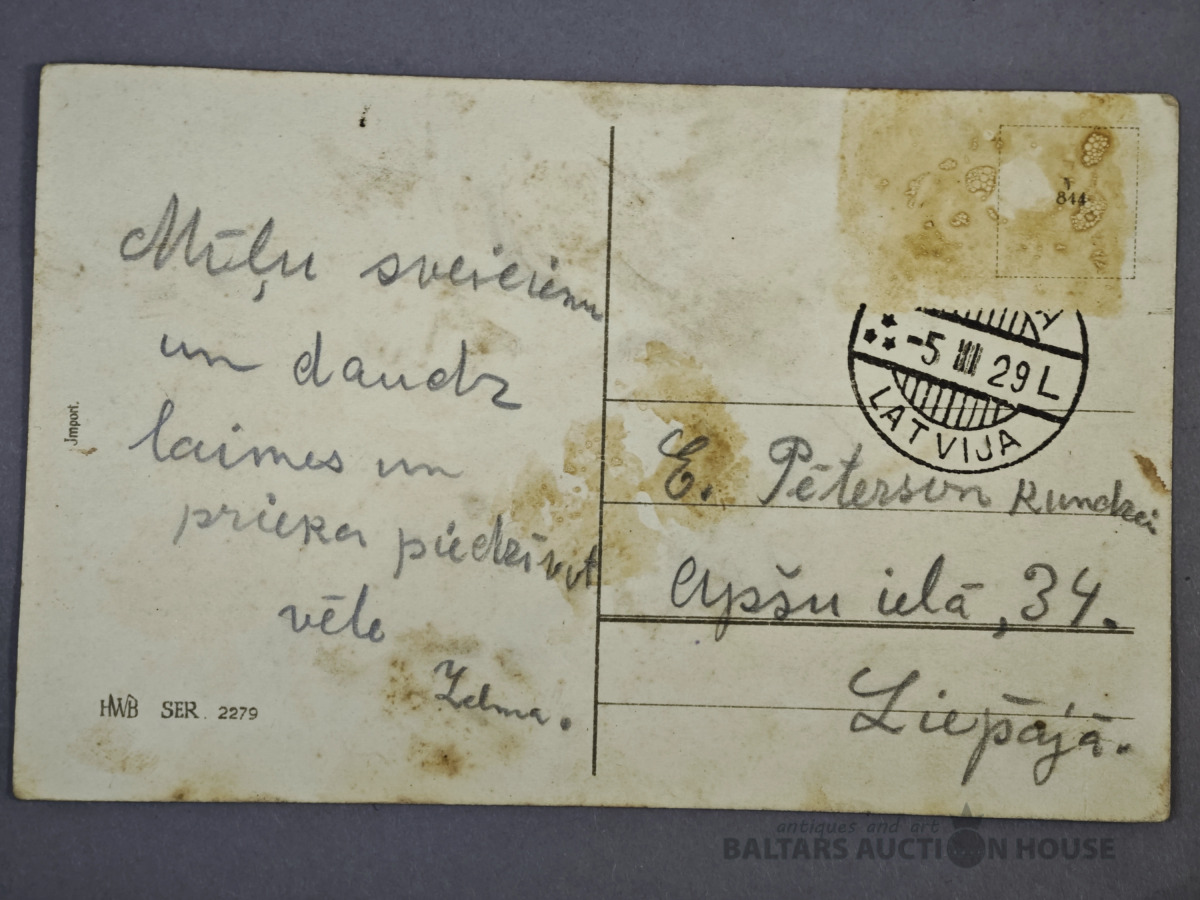 Mūļu sveicienu
un daudz
laimes un
prieka piedzīvot
vēle
Zelma.
Jmport.
HWB SER. 2279
844
-5 29 L
LATVIJA
E. Pēterson kundzei
Apšu ielā, 34.
Liepājā.
antiques and art
BALTARS AUCTION HOUSE